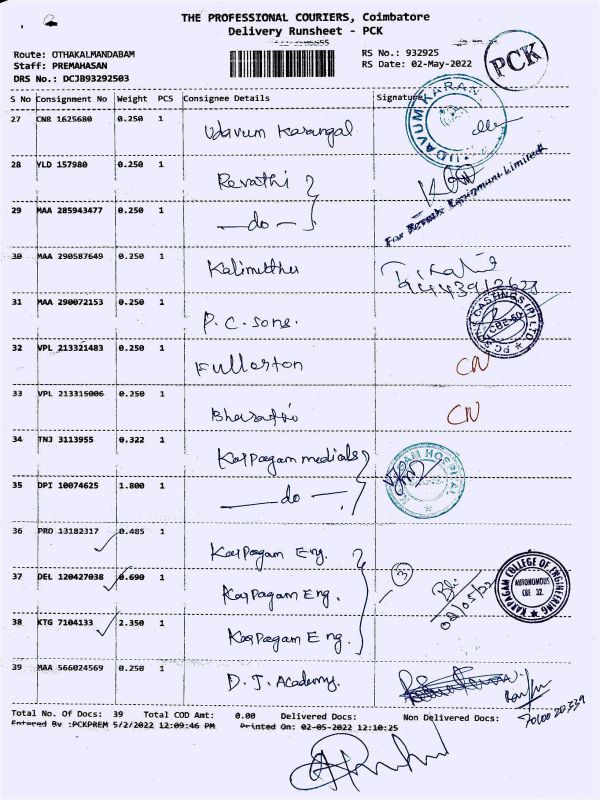 THE PROFESSIONAL COURIERS, Coimbatore
Delivery Runsheet - PCK
Route: OTHAKALMANDABAM
Staff: PREMAHASAN
DRS No.: DCJB93292503
RS No.: 932925
RS Date: 02-May-2022
PCK
S No Consignment No Weight PCS Consignee Details Signature
27 CNR 1625680 0.250 1 Udavum Karangal
UDAVUM KARAN
28 YLD 157980 0.250 1 Revathi
For Revathi Equipment Limited
29 MAA 285943477 0.250 1 — do —
30 MAA 290587649 0.250 1 Kalimuthu
31 MAA 290072153 0.250 1 P.C. Sons.
CASTINGS (P) LTD
32 VPL 213321483 0.250 1 Fullerton CN
33 VPL 213315006 0.250 1 Bharathi CN
34 TNJ 3113955 0.322 1 Karpagam medicals
HOSPITAL
35 DPI 10074625 1.800 1 — do —
36 PRO 13182317 0.485 1 Karpagam Eng.
37 DEL 120427038 0.690 1 Karpagam Eng. 3
02/05/22
KARPAGAM COLLEGE OF ENGINEERING
AUTONOMOUS
CBE 32.
38 KTG 7104133 2.350 1 Karpagam Eng.
39 MAA 566024569 0.250 1 D.J. Academy.
Total No. Of Docs: 39 Total COD Amt: 0.00 Delivered Docs: Non Delivered Docs:
Entered By :PCKPREM 5/2/2022 12:09:46 PM Printed On: 02-05-2022 12:10:25